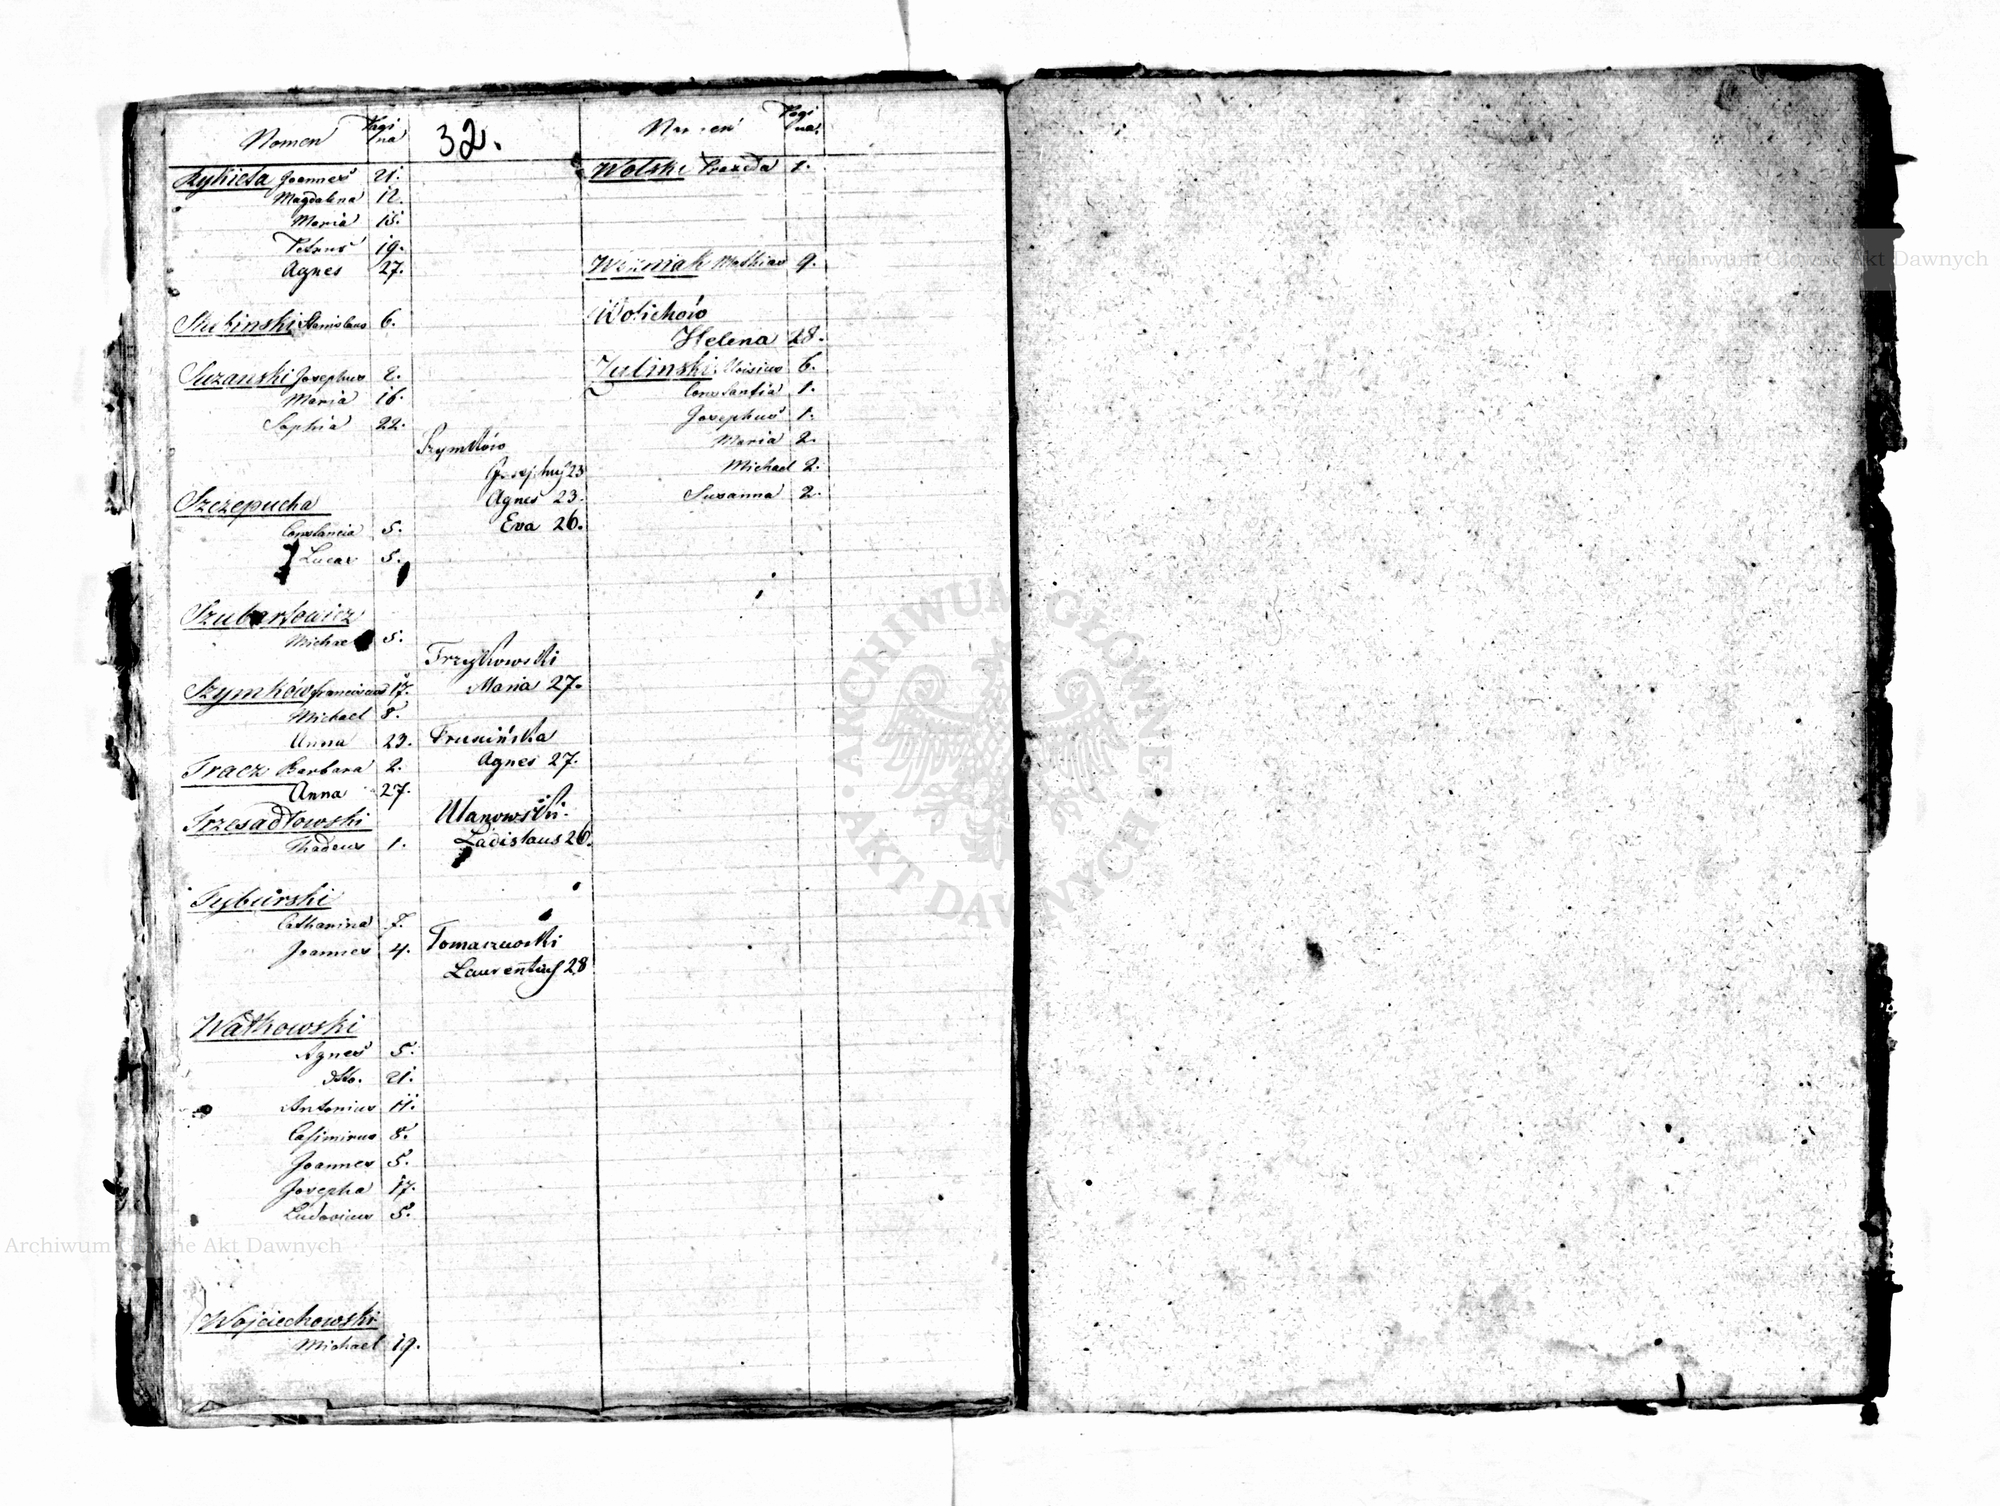 Nomen Pagi
na
32.
Rykieta Joannes 21.
Magdalena 12.
Maria 15.
Petrus 19.
Agnes 27.
Stanislaus 6.
Suzanski Josephus 2.
Maria 16.
Sophia 22.
Szczepucha
Constancia 5.
Lucas 5.
Szubartowicz
Michael 5.
Szymków Franciscus 17.
Michael 8.
Anna 23.
Tracz Barbara 2.
Anna 27.
Trzesadłowski
Thadeus 1.
Tyburski
Catharina 7.
Joannes 4.
Watkowski
Agnes 5.
dtto. 21.
Antonius 11.
Casimirus 8.
Joannes 5.
Josepha 17.
Ludovicus 5.
Wojciechowski
Michael 19.
Szymków
Josephus 23
Agnes 23.
Eva 26.
Maria 27.
Agnes 27.
Ulanowski.
Ladislaus 26.
Tomaszwski
Laurentius 28
Nomen Pagi
na.
Wolski 1.
Mathias 9.
Helena 28.
Zulinski Aloisius 6.
Constantia 1.
Josephus 1.
Maria 2.
Michael 2.
Susanna 2.
ARCHIWUM GŁÓWNE AKT DAWNYCH
Archiwum Główne Akt Dawnych
Archiwum Główne Akt Dawnych